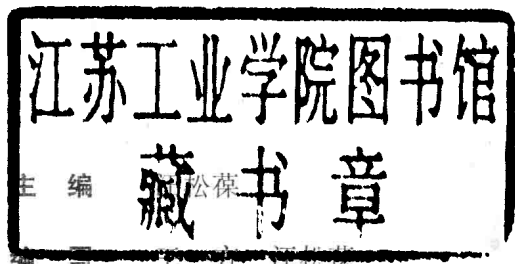 江苏工业学院图书馆
藏书章
主 编 松葆